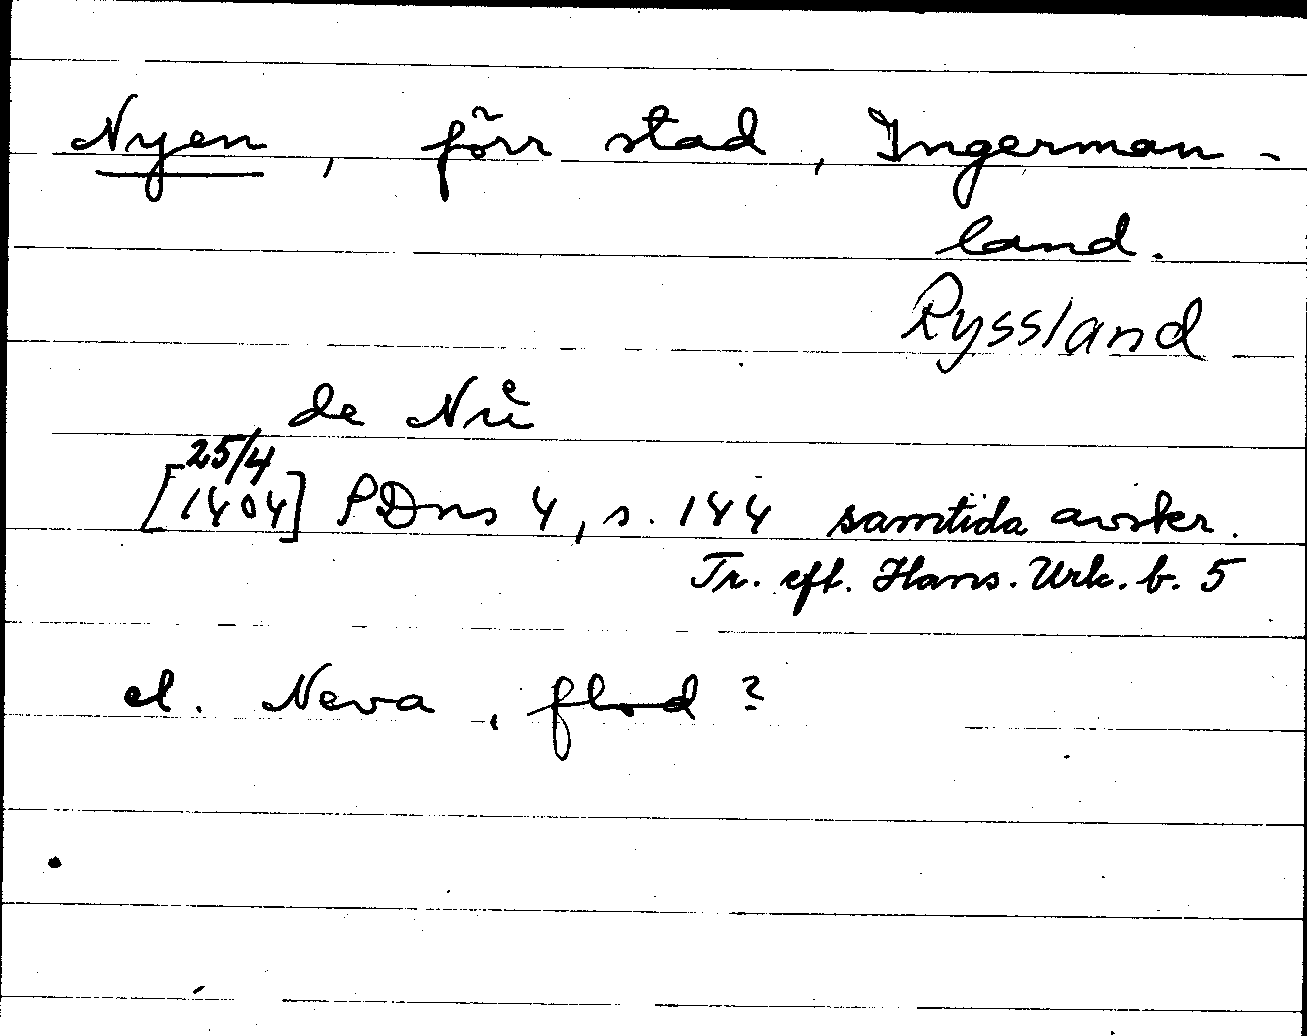 Nyen, förr stad, Ingerman-
land.
Ryssland
de Nuͤ
25/4
[1404] PDns 4, s. 144 samtida avskr.
Tr. eft. Hans. Urk. b. 5
el. Neva, flod?